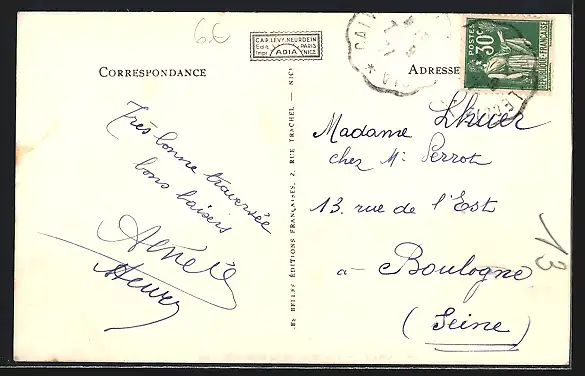 6€
CAP. LEVY. NEURDEIN
Edit PARIS
Impr ADIA NICE
CORRESPONDANCE
ADRESSE
POSTES
30c
REPUBLIQUE FRANÇAISE
CALV
Très bonne traversée
bons baisers
LES BELLES ÉDITIONS FRANÇAISES, 2, RUE TRACHEL — NICE
Madame Lhuer
chez Mr Perrot
13. rue de l'Est
a- Boulogne
(Seine)
13